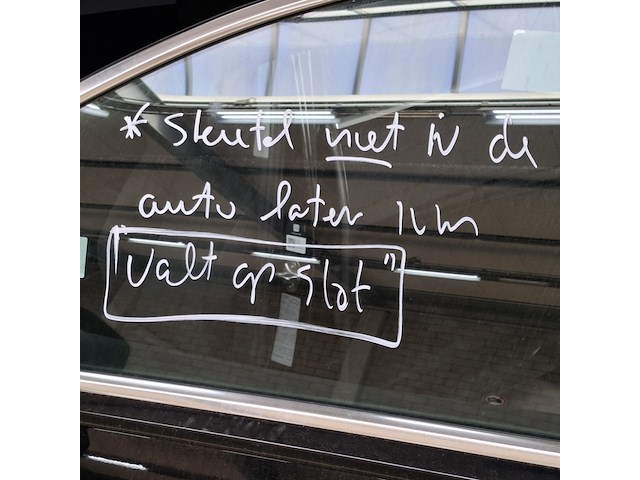 * Sleutel niet in de
auto laten !!!
"Valt op slot"